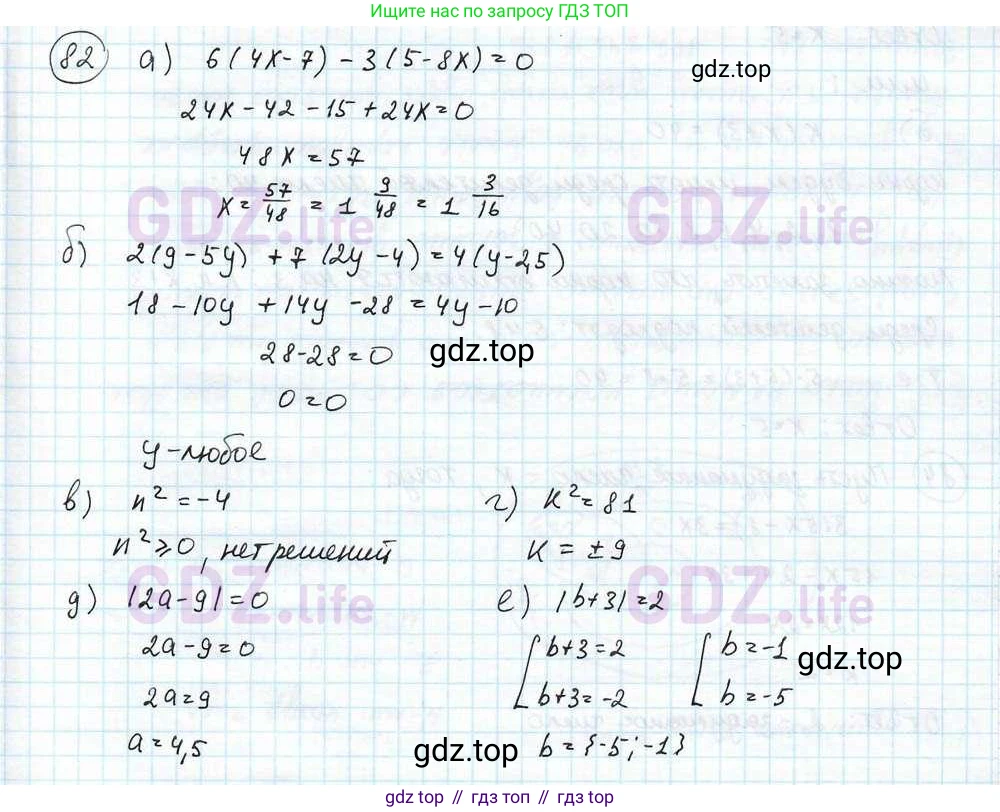 Ищите нас по запросу ГДЗ ТОП
82 а) 6(4x-7) - 3(5-8x)=0
gdz.top
24x-42-15+24x=0
48x=57
x=57/48 = 1 9/48 = 1 3/16
GDZ.life GDZ.life
б) 2(9-5y) + 7(2y-4)=4(y-2,5)
18-10y+14y-28=4y-10
28-28=0
gdz.top
0=0
y-любое
в) n²=-4
n²⩾0, нет решений
г) k²=81
k=±9
GDZ.life GDZ.life
д) |2a-9|=0
2a-9=0
2a=9
a=4,5
е) |b+3|=2
[b+3=2 [b=-1
[b+3=-2 [b=-5
gdz.top
b={-5;-1}
gdz.top
gdz.top // гдз.топ // gdz.top